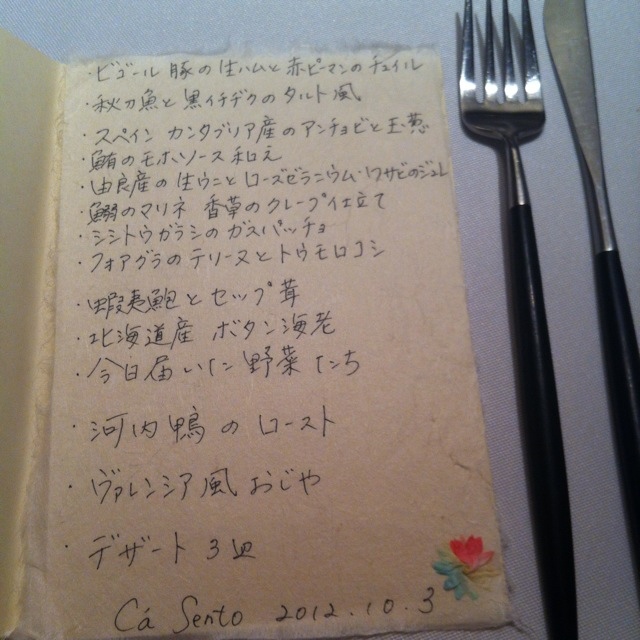 ・ビゴール 豚の生ハムと赤ピーマンのチュイル
・秋刀魚と黒イチヂクのタルト風
・スペイン カンタブリア産のアンチョビと玉葱
・鮪のモホソース和え
・由良産の生ウニとローズゼラニウム・ワサビのジュレ
・鰯のマリネ 香草のクレープ仕立て
・シシトウガラシのガスパッチョ
・フォアグラのテリーヌとトウモロコシ
・蝦夷鮑とセップ茸
・北海道産 ボタン海老
・今日届いた野菜たち
・河内鴨のロースト
・ヴァレンシア風おじや
・デザート 3皿
Cá Sento 2012.10.3